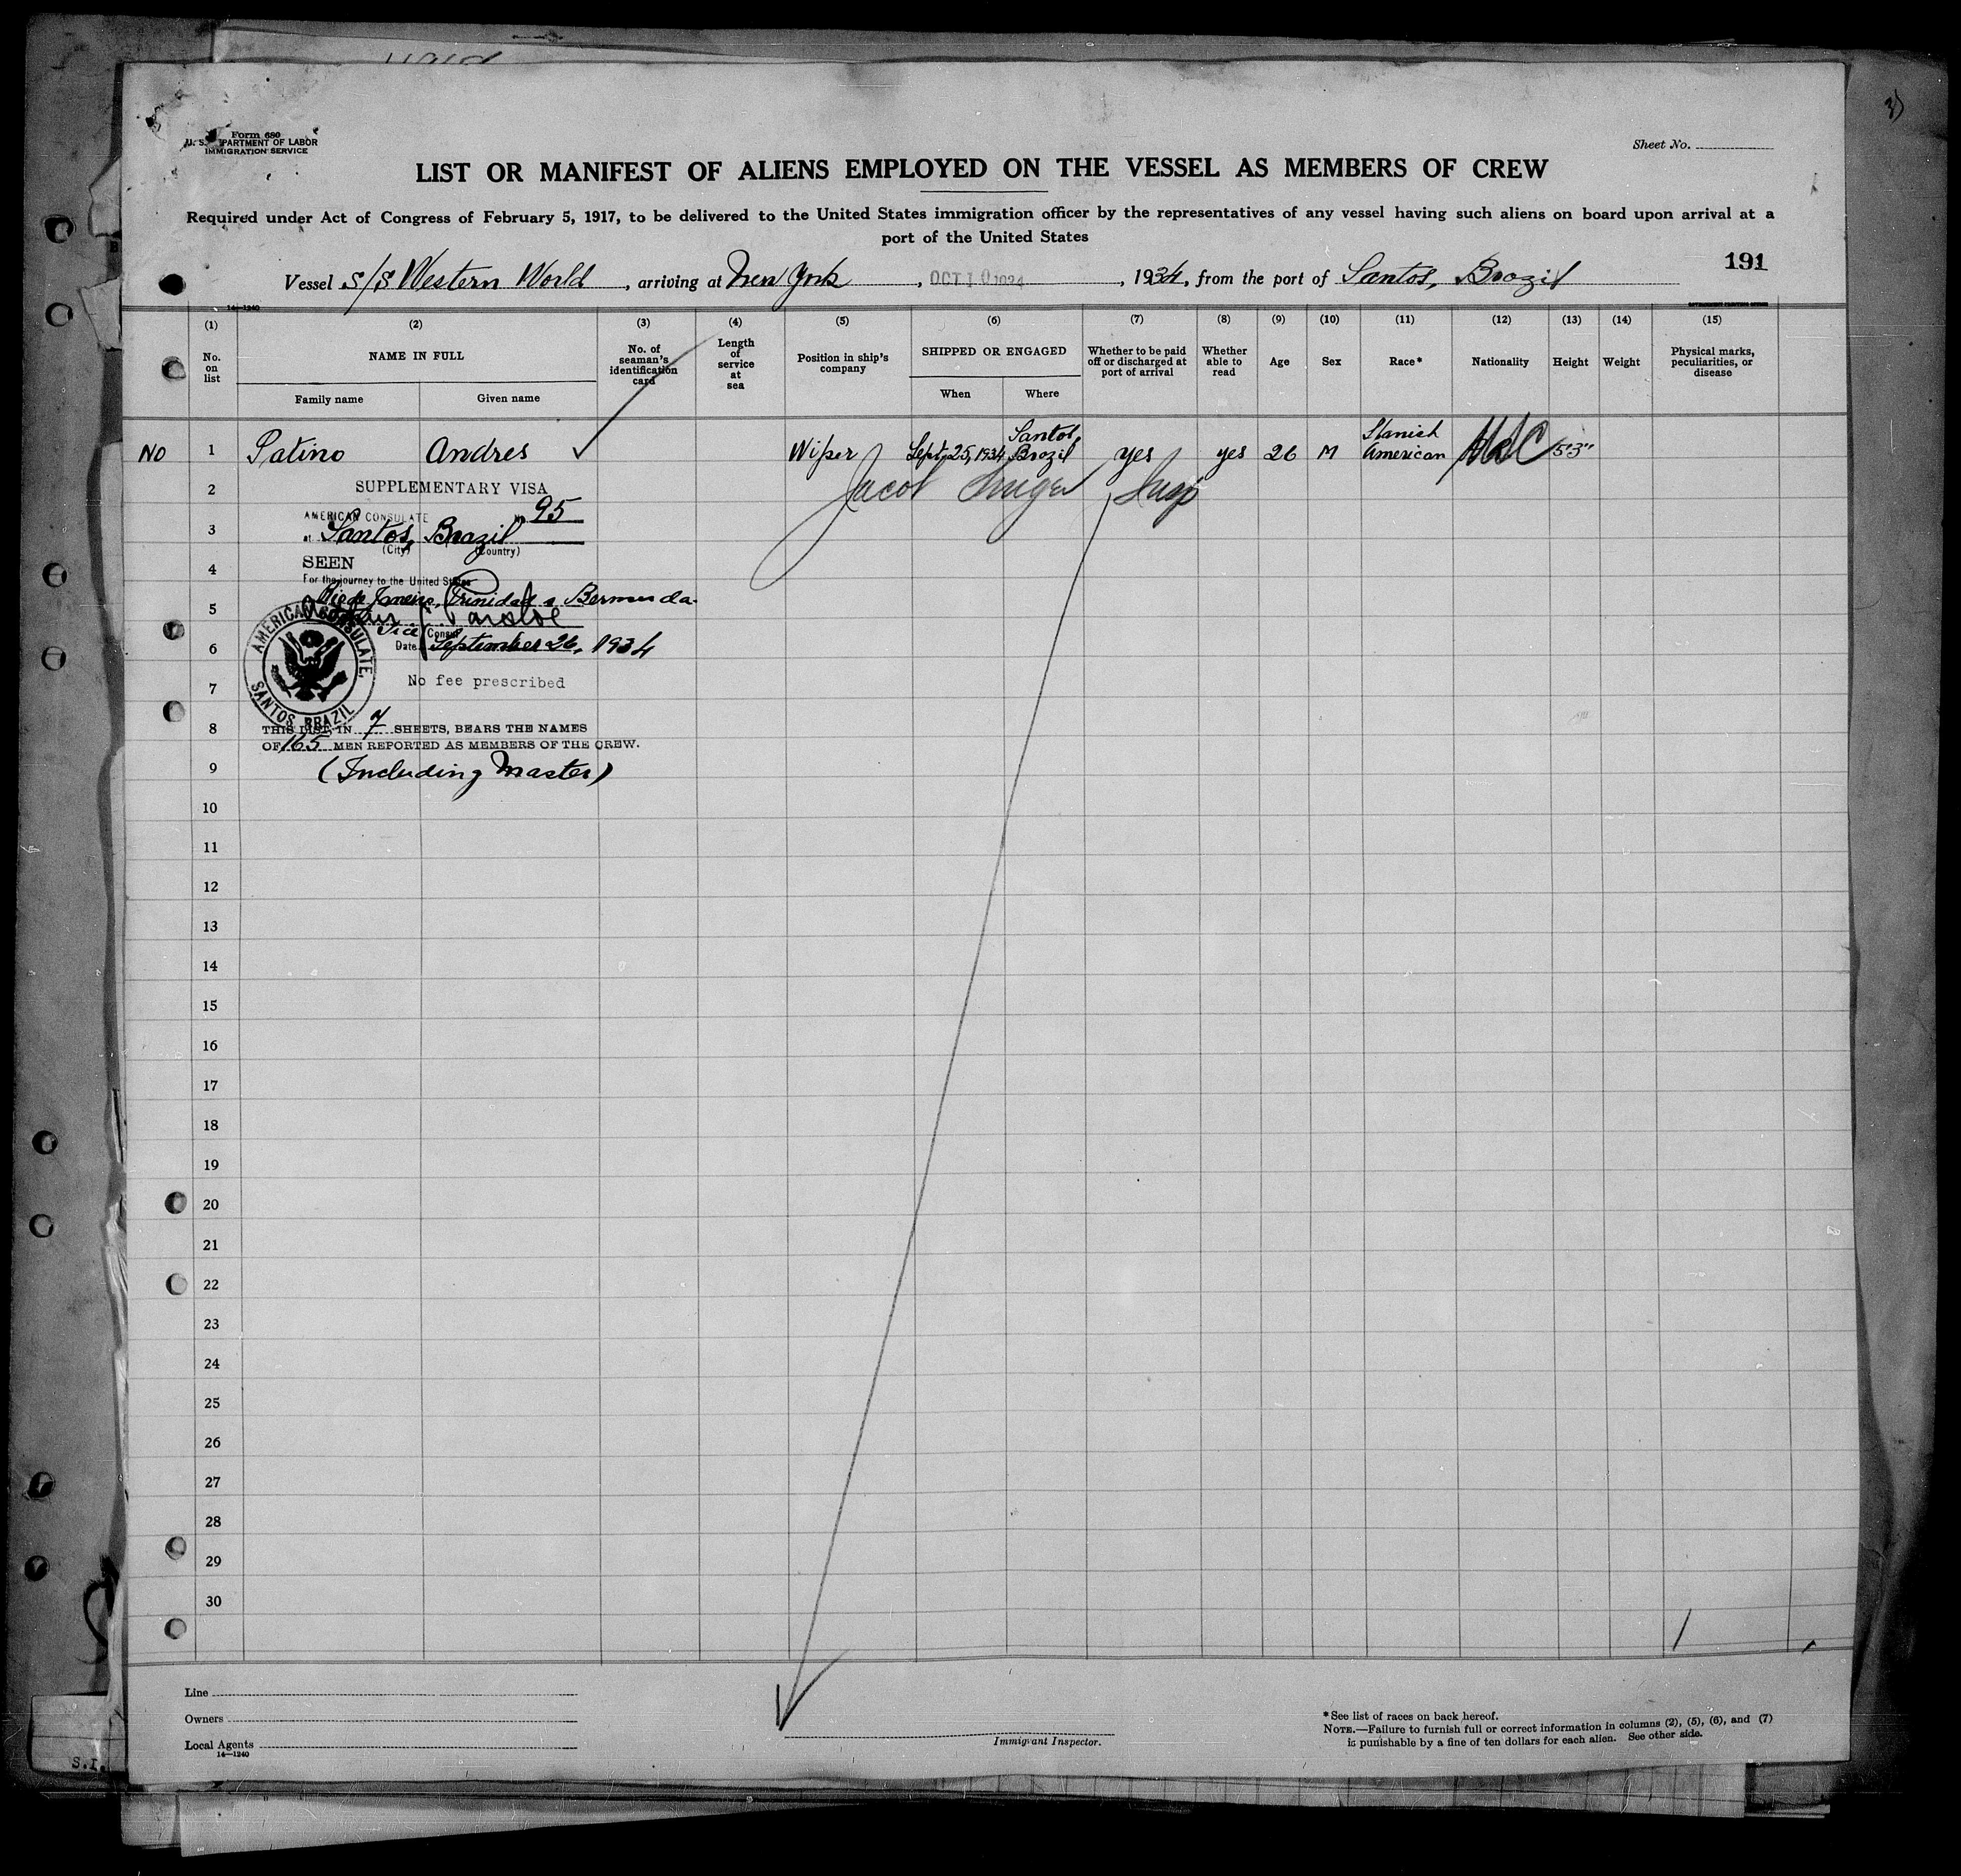 Form 680
U. S. DEPARTMENT OF LABOR
IMMIGRATION SERVICE
Sheet No.
LIST OR MANIFEST OF ALIENS EMPLOYED ON THE VESSEL AS MEMBERS OF CREW
Required under Act of Congress of February 5, 1917, to be delivered to the United States immigration officer by the representatives of any vessel having such aliens on board upon arrival at a
port of the United States
191
Vessel S/S Western World, arriving at New York, OCT 10 1934, 1934, from the port of Santos, Brazil
14—1240
(1) (2) (3) (4) (5) (6) (7) (8) (9) (10) (11) (12) (13) (14) (15)
No. on list
NAME IN FULL
Family name
Given name
No. of seaman's identification card
Length of service at sea
Position in ship's company
SHIPPED OR ENGAGED
When
Where
Whether to be paid off or discharged at port of arrival
Whether able to read
Age
Sex
Race*
Nationality
Height
Weight
Physical marks, peculiarities, or disease
NO 1 Patino Andres Wiper Sept. 25, 1934 Santos, Brazil yes yes 26 M Spanish American 5'3"
2
SUPPLEMENTARY VISA
Jacob Insp
AMERICAN CONSULATE 95
3
at Santos, Brazil
(City) (Country)
SEEN
4
For the journey to the United States
Rio de Janeiro, Trinidad & Bermuda.
5
Vice Consul
6
Date September 26, 1934
AMERICAN CONSULATE, SANTOS, BRAZIL
7
No fee prescribed
8
THIS LIST, IN 7 SHEETS, BEARS THE NAMES
OF 165 MEN REPORTED AS MEMBERS OF THE CREW.
9
(Including Master)
10
11
12
13
14
15
16
17
18
19
20
21
22
23
24
25
26
27
28
29
30
Line
Owners
Local Agents
14—1240
Immigrant Inspector.
*See list of races on back hereof.
NOTE.—Failure to furnish full or correct information in columns (2), (5), (6), and (7)
is punishable by a fine of ten dollars for each alien. See other side.
S.I.